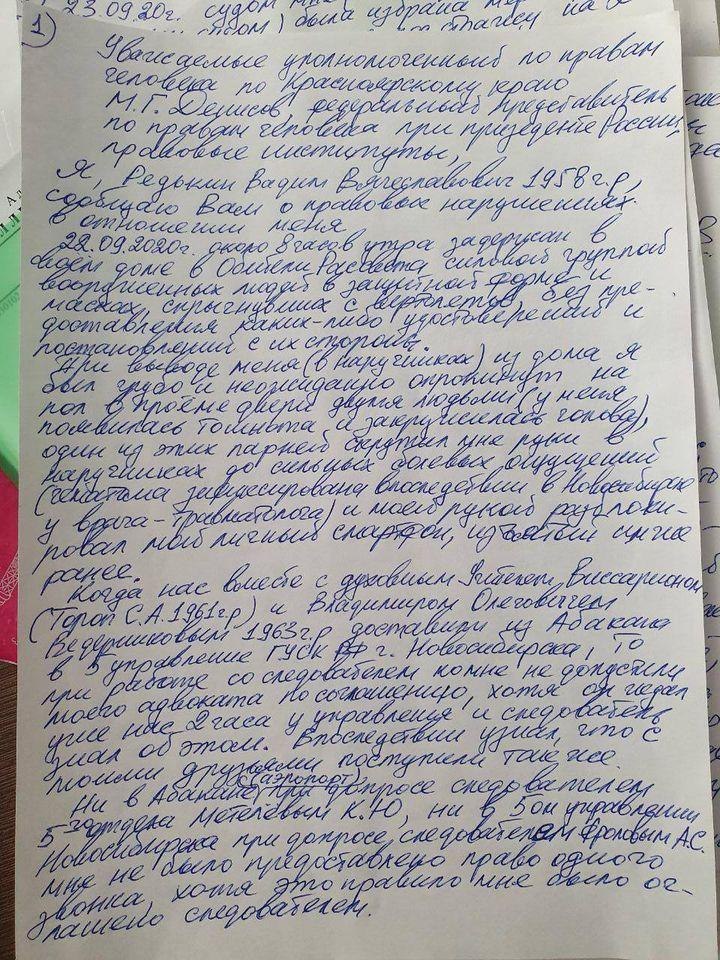 23.09.20г. судом
была избрана
1)
Уважаемые уполномоченный по правам
человека по Красноярскому краю
М.Г. Денисов, федеральный представитель
по правам человека при президенте России,
правовые институты,
Я, Редькин Вадим Вячеславович 1958г.р,
сообщаю Вам о правовых нарушениях
в отношении меня
22.09.2020г. около 8 часов утра задержан в
своём доме в Обители Рассвета силовой группой
вооруженных людей в защитной форме и
масках, спрыгнувших с вертолетов, без пре-
доставления каких-либо удостоверений и
постановлений с их стороны.
При выводе меня (в наручниках) из дома я
был грубо и неожиданно опрокинут на
пол в проёме двери двумя людьми (у меня
появилась тошнота и закружилась голова),
один из этих парней скрутил мне руки в
наручниках до сильных болевых ощущений
(гематома зафиксирована впоследствии в Новосибирске
у врача-травматолога) и моей рукой разблоки-
ровал мой личный смартфон, изъятый ими
ранее.
Когда нас вместе с духовным Учителем, Виссарионом
(Тороп С.А. 1961г.р) и Владимиром Олеговичем
Ведерниковым 1963г.р доставили из Абакана
в 5 управление ГУСК г. Новосибирска, то
при работе со следователем ко мне не допустили
моего адвоката по соглашению, хотя он ждал
уже нас 2 часа у управления и следователь
знал об этом. Впоследствии узнал, что с
моими друзьями поступили также.
Ни в Абакане (аэропорт) при допросе следователем
5го отдела Метелёвым К.Ю, ни в 5ом управлении
Новосибирска при допросе следователем Фроловым А.С.
мне не было предоставлено право одного
звонка, хотя это правило мне было ог-
лашено следователем.